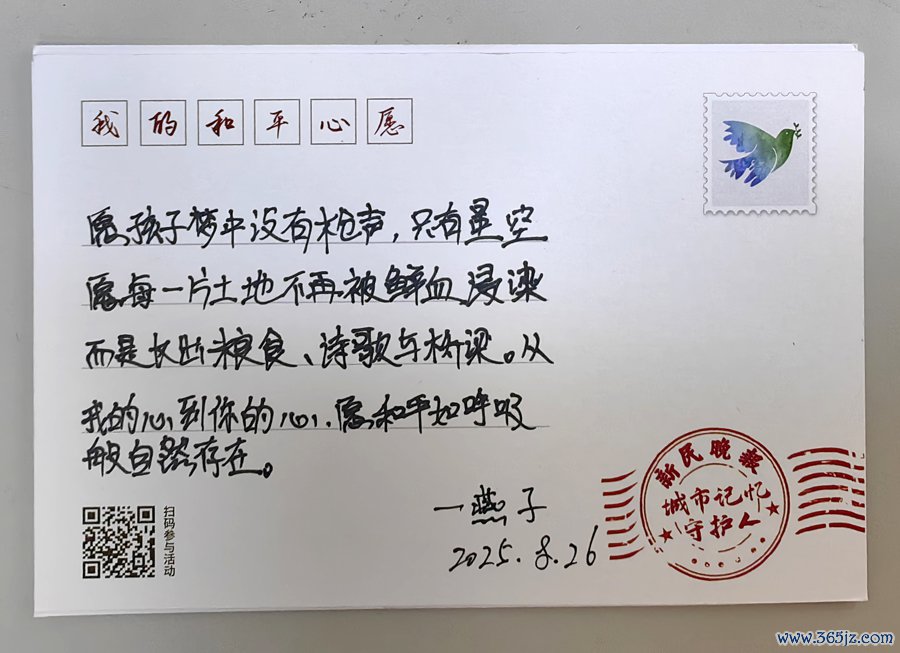 我的和平心愿
愿孩子梦中没有枪声,只有星空
愿每一片土地不再被鲜血浸染
而是长出粮食、诗歌与桥梁。从
我的心到你的心,愿和平如呼吸
般自然存在。
一燕子
2025.8.26
扫码参与活动
新民晚报
城市记忆
守护人
www.365jz.com